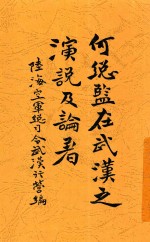 何総監在武漢之
演説及論著
陸海空軍総司令武漢行營編